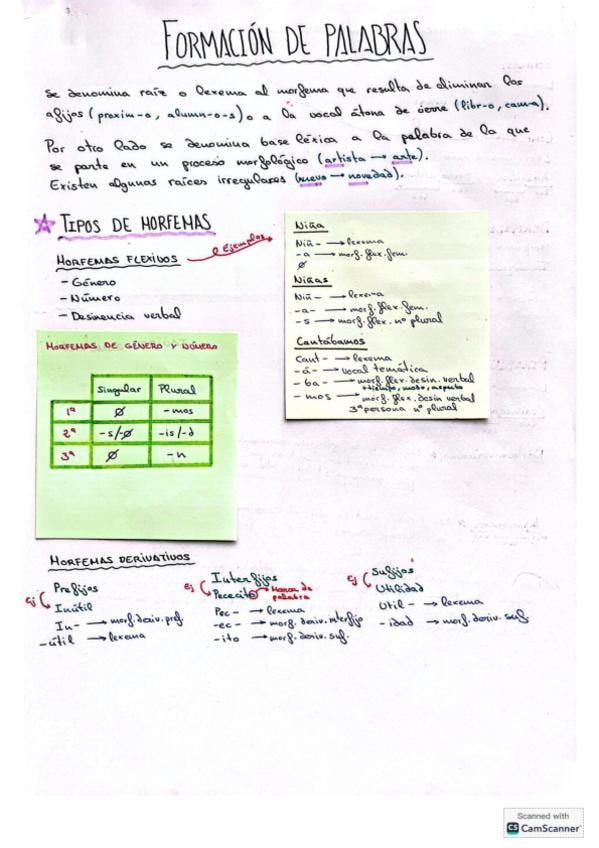 FORMACIÓN DE PALABRAS
Se denomina raíz o lexema al morfema que resulta de eliminar los
afijos (proxim-o, alumn-o-s) o a la vocal átona de cierre (libr-o, cam-a).
Por otro lado se denomina base léxica a la palabra de la que
se parte en un proceso morfológico (artista → arte).
Existen algunas raíces irregulares (nuevo → novedad).
TIPOS DE MORFEMAS
MORFEMAS FLEXIVOS
Ejemplos
- Género
- Número
- Desinencia verbal
Niña
Niñ- → lexema
- a → morf. flex. fem.
∅
Niñas
Niñ → lexema
- a- → morf. flex. fem.
- s → morf. flex. nº plural
Cantábamos
Cant- → lexema
- á- → vocal temática
- ba- → morf. flex. desin. verbal
tiempo, modo, aspecto
- mos → morf. flex. desin verbal
3ª persona nº plural
MORFEMAS DE GÉNERO Y NÚMERO
Singular Plural
1ª ∅ - mos
2ª -s/-∅ -is/-d
3ª ∅ - n
MORFEMAS DERIVATIVOS
Prefijos
Ej Inútil
In- → morf. deriv. pref.
-útil → lexema
Interfijos
Ej Pececito → Marca de palabra
Pec- → lexema
-ec- → morf. deriv. interfijo
-ito → morf. deriv. suf.
Sufijos
Ej Utilidad
Util- → lexema
- idad → morf. deriv. suf.
Scanned with
CS CamScanner